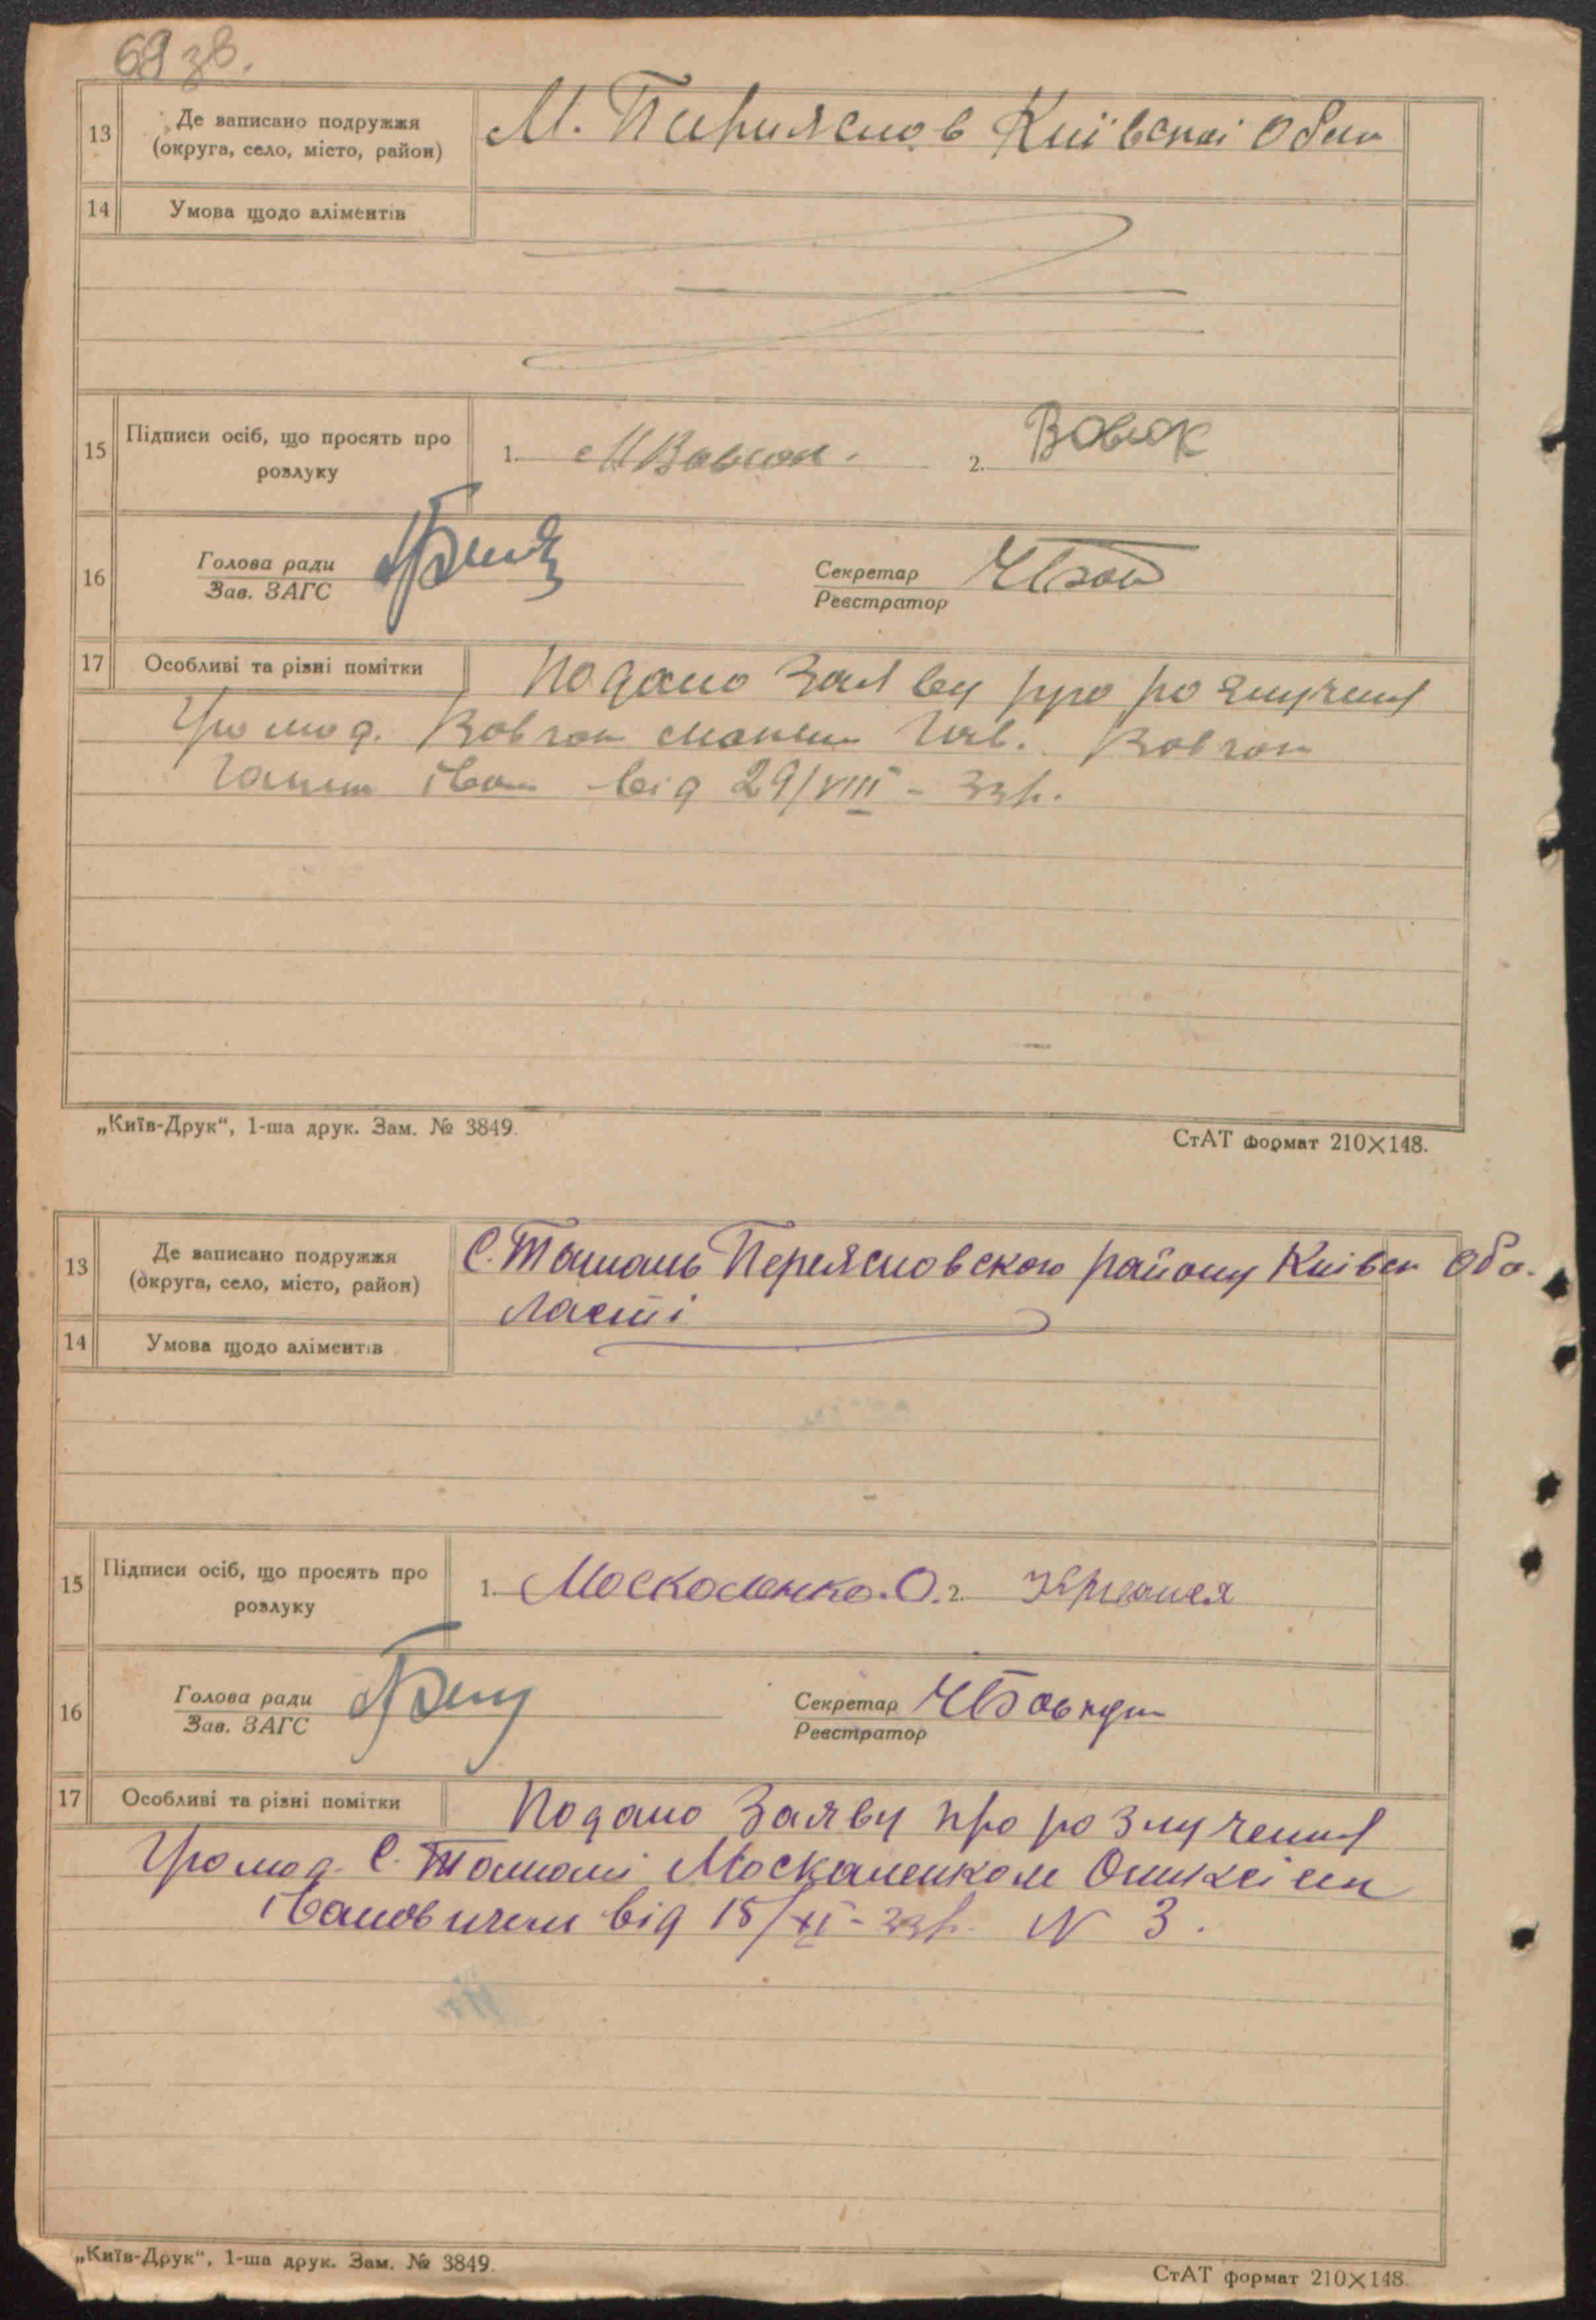 69 зв.
13 Де записано подружжя М. Перияслов Київскої Обл
(округа, село, місто, район)
14 Умова щодо аліментів
15 Підписи осіб, що просять про розлуку 1. М Вовчок. 2. Вовчок
16 Голова ради
Зав. ЗАГС
Секретар
Реєстратор
17 Особливі та різні помітки Подано Заяву про розлучення
Громад. Вовчок Вовчок
від 29/VIII - 33р.
„Київ-Друк“, 1-ша друк. Зам. № 3849.
СтАТ формат 210×148.
13 Де записано подружжя С. Ташань Переясловского району Київск Обл.
(округа, село, місто, район) ласті
14 Умова щодо аліментів
15 Підписи осіб, що просять про розлуку 1. Москаленко. О. 2.
16 Голова ради
Зав. ЗАГС
Секретар
Реєстратор
17 Особливі та різні помітки Подано Заяву про розлучення
Громад. С. Ташані Москаленком
Івановичем від 15/XI - 33р. N 3.
„Київ-Друк“, 1-ша друк. Зам. № 3849.
СтАТ формат 210×148.